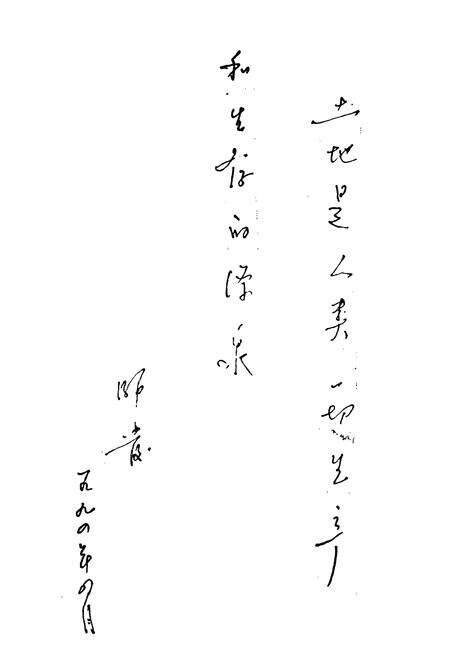 土地是人类一切生产
和生存的源泉
师
一九九四年四月